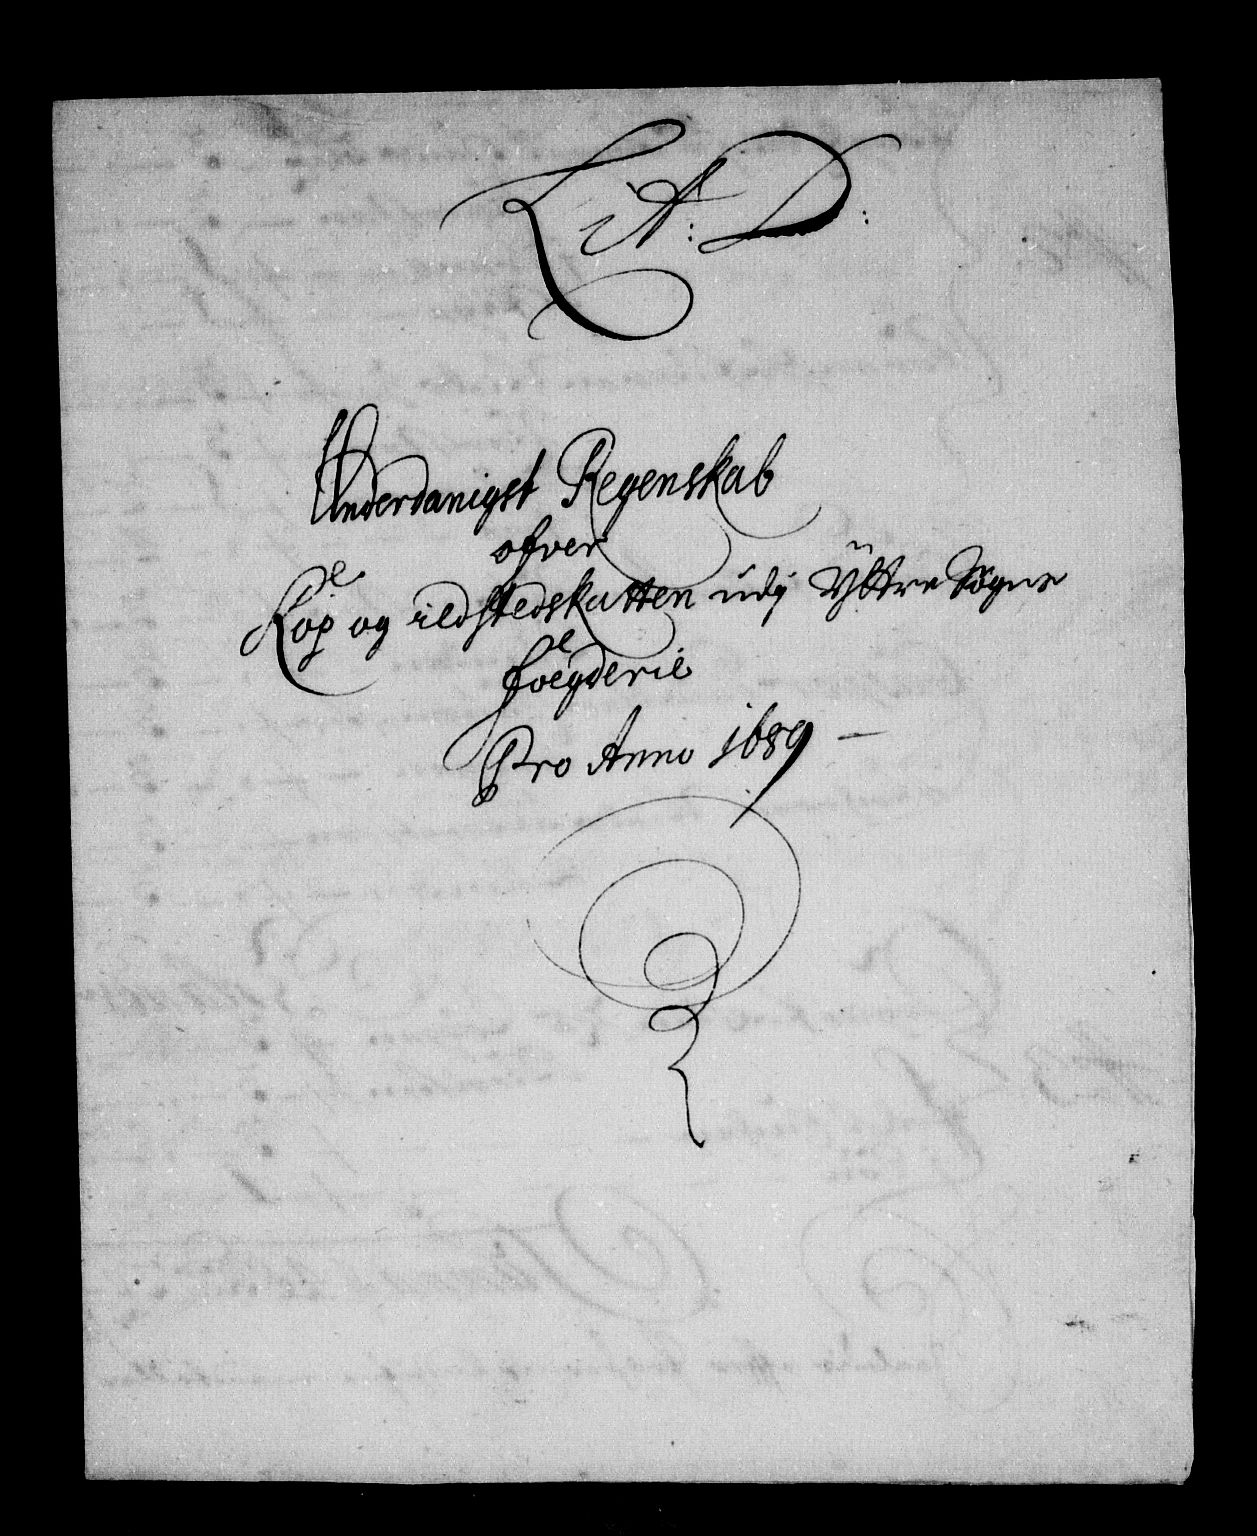 Lit: D:
Underdanigst Regenskab
ofver
Kop og ildstedskatten udj Yttre Sogns
foegderie
Pro Anno 1689 –